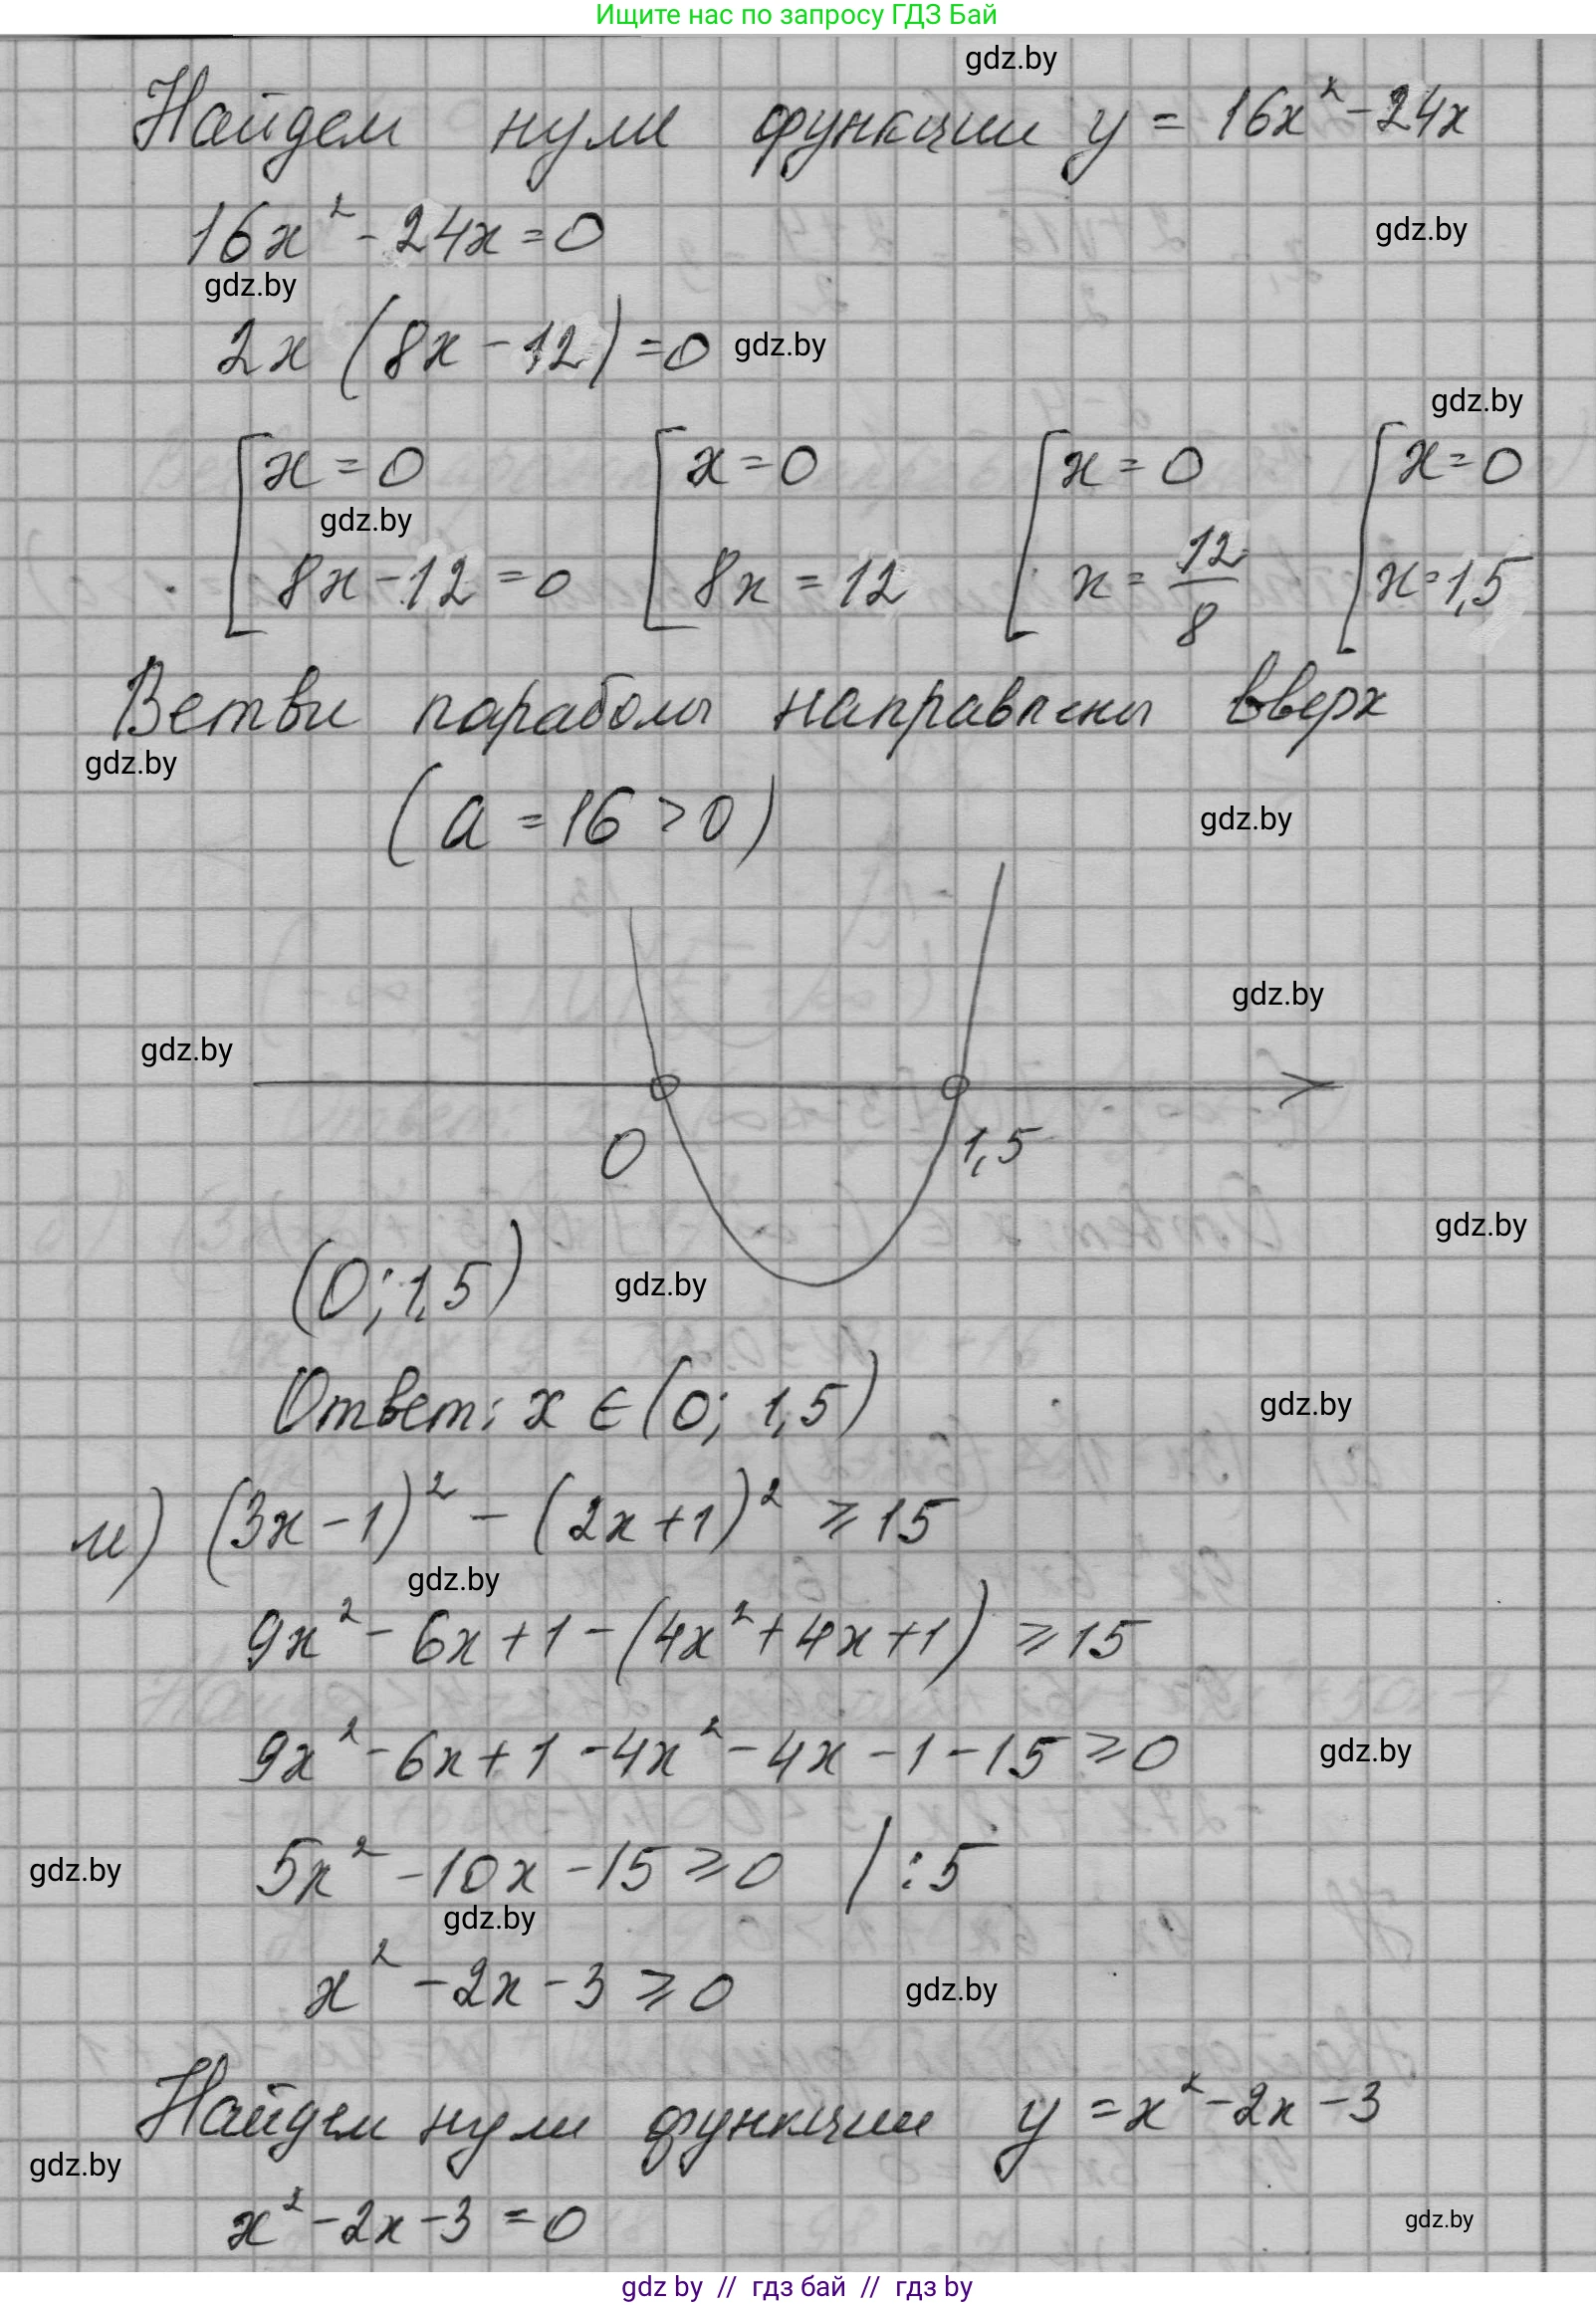 Ищите нас по запросу ГДЗ Бай
gdz.by
Найдем нули функции y = 16x² - 24x
16x² - 24x = 0
gdz.by
gdz.by
2x (8x - 12) = 0 gdz.by
gdz.by
[x = 0 [x = 0 [x = 0 [x = 0
gdz.by
8x - 12 = 0 8x = 12 x = 12/8 x = 1,5
Ветви параболы направлены вверх
gdz.by
(a = 16 > 0)
gdz.by
gdz.by
gdz.by
0 1,5
gdz.by
(0; 1,5) gdz.by
Ответ: x ∈ (0; 1,5)
gdz.by
и) (3x - 1)² - (2x + 1)² ⩾ 15
gdz.by
9x² - 6x + 1 - (4x² + 4x + 1) ⩾ 15
9x² - 6x + 1 - 4x² - 4x - 1 - 15 ⩾ 0
gdz.by
5x² - 10x - 15 ⩾ 0 | : 5
gdz.by
gdz.by
x² - 2x - 3 ⩾ 0
gdz.by
Найдем нули функции y = x² - 2x - 3
gdz.by
x² - 2x - 3 = 0
gdz.by
gdz by // гдз бай // гдз by